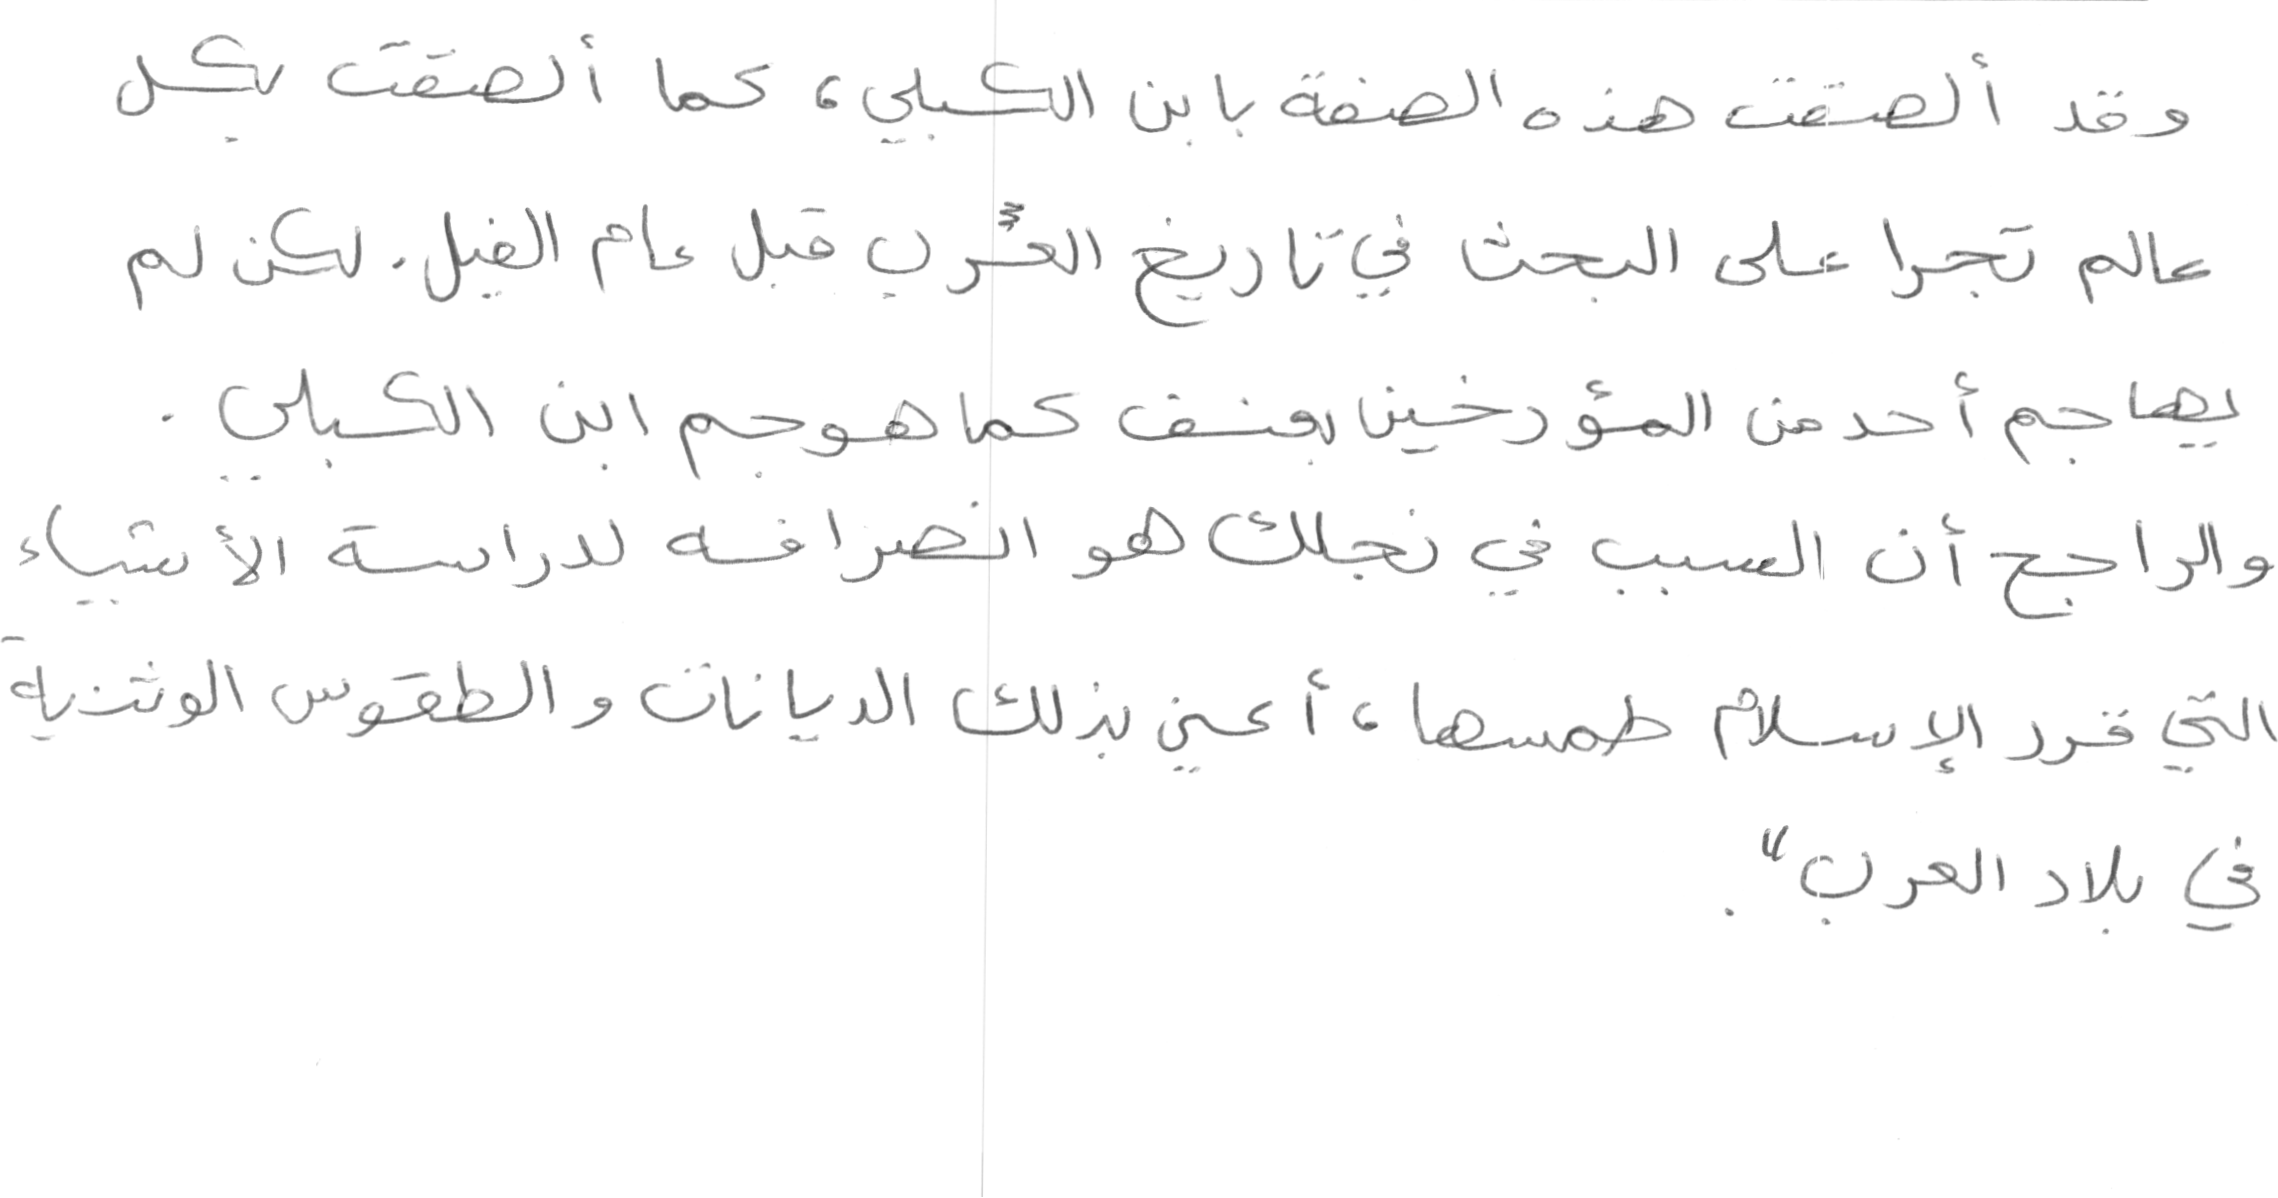 وقد ألصقت هذه الصفة بابن الكبلي، كما ألصقت بكل
عالم تجرا على البحث في تاريخ العرب قبل عام الفيل. لكن لم
يهاجم أحد من المؤرخين بعنف كما هوجم ابن الكبلي.
والراجح أن السبب في نجلك هو انصرافه لدراسة الأشياء
التي قرر الإسلام طمسها، أعين بذلك الديانات والطقوس الوثنية
في بلاد العرب".